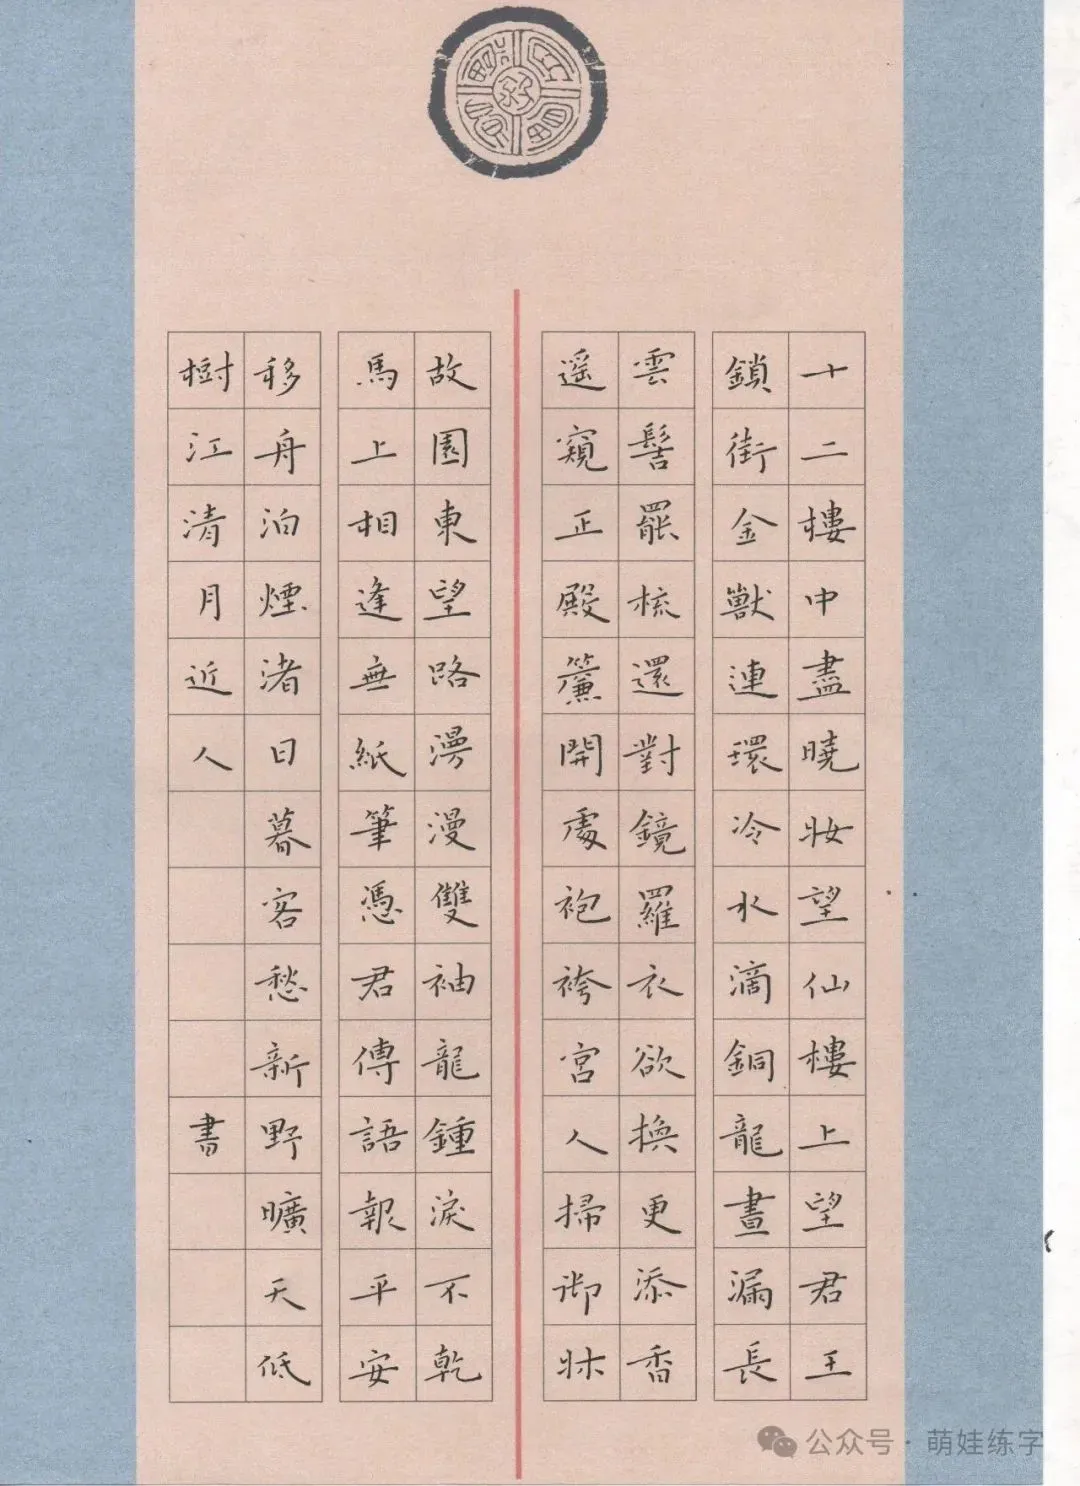 十二樓中盡曉妝望仙樓上望君王
鎖銜金獸連環冷水滴銅龍晝漏長
雲髻罷梳還對鏡羅衣欲換更添香
遥窺正殿簾開處袍袴宮人掃御牀
故園東望路漫漫雙袖龍鍾淚不乾
馬上相逢無紙筆憑君傳語報平安
移舟泊煙渚日暮客愁新野曠天低
樹江清月近人
書
公众号 · 萌娃练字